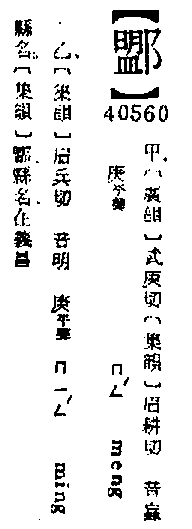 【】
40560
甲、〔廣韻〕武庚切〔集韻〕眉耕切 音
庚平聲 ㄇㄥˊ meng
乙、〔集韻〕眉兵切 音明 庚平聲 ㄇㄧㄥˊ ming
縣名。〔集韻〕縣名在義昌